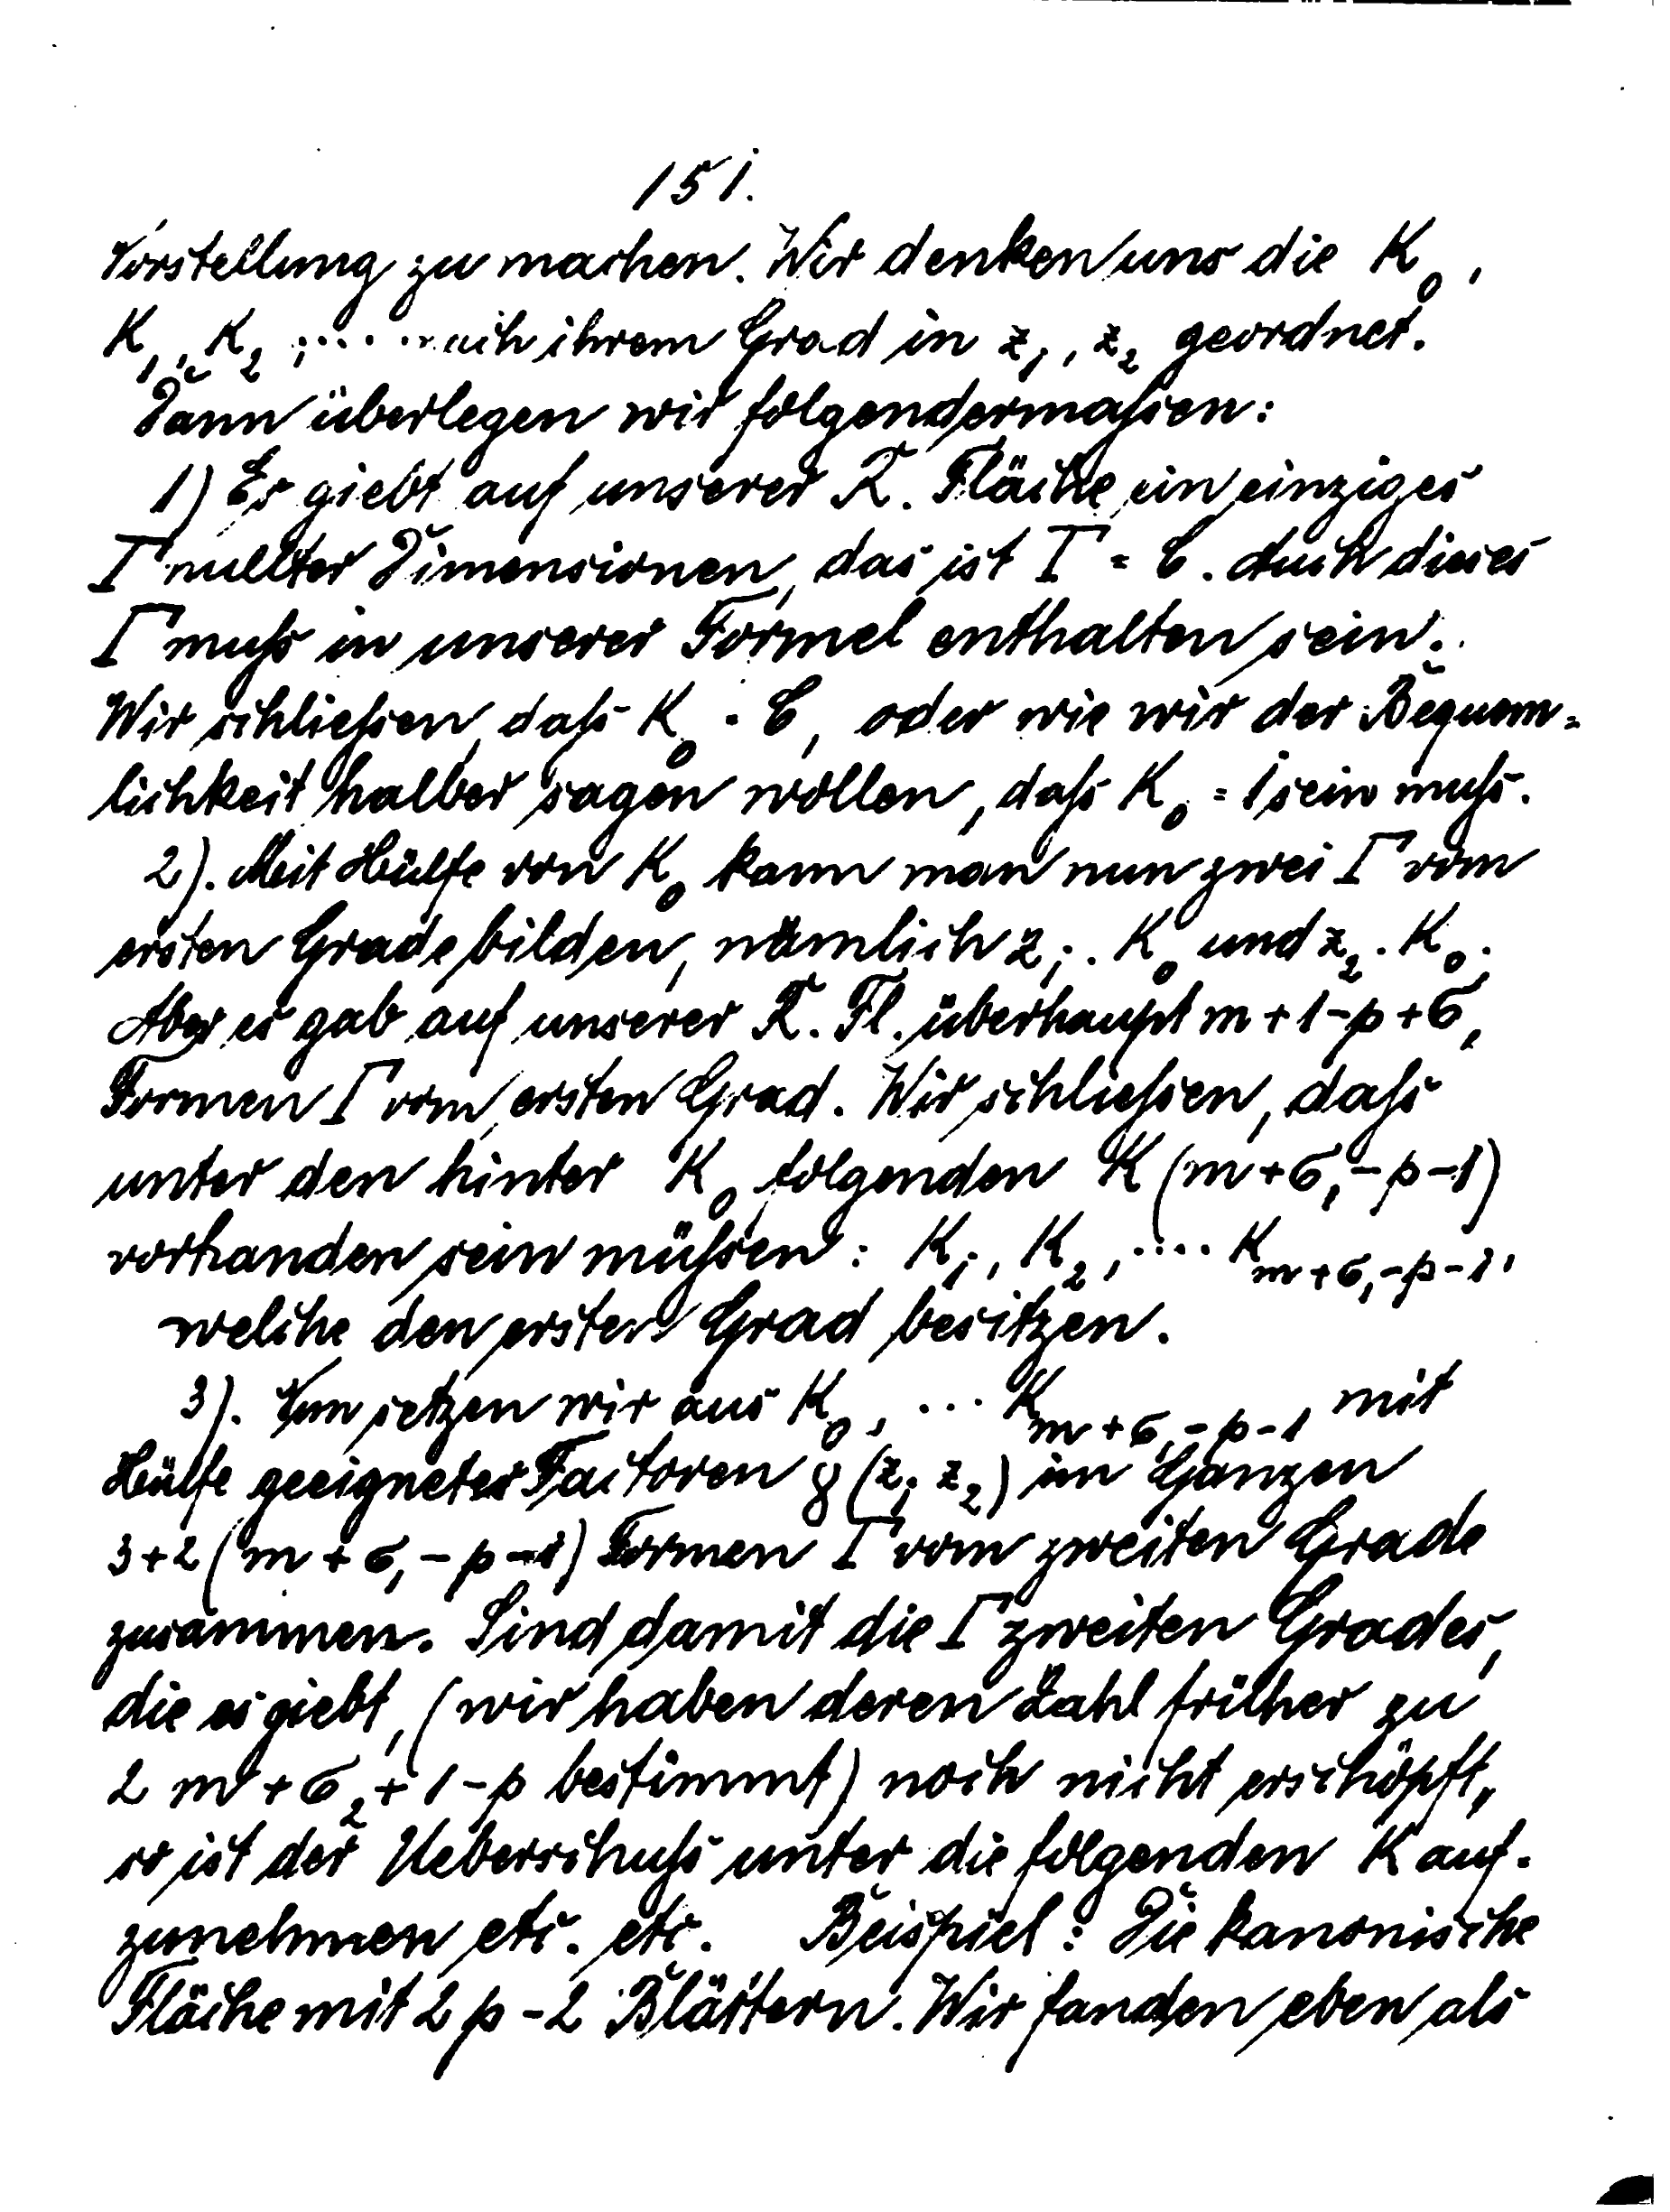 151.
Vorstellung zu machen. Wir denken uns die K₀,
K₁, K₂, .... nach ihrem Grad in z₁, z₂ geordnet.
Dann überlegen wir folgendermaßen:
1) Es giebt auf unserer R. Fläche ein einziges
Γ nullter Dimensionen, das ist Γ = C. Auch dieses
Γ muß in unserer Formel enthalten sein.
Wir schließen, daß K₀ = C, oder wie wir der Bequem=
lichkeit halber sagen wollen, daß K₀ = 1 sein muß.
2). Mit Hülfe von K₀ kann man nun zwei Γ vom
ersten Grade bilden, nämlich z₁ . K₀ und z₂ . K₀.
Aber es gab auf unserer R. Fl. überhaupt m + 1 - p + σ₁
Formen Γ vom ersten Grad. Wir schließen, daß
unter den hinter K₀ folgenden K (m + σ₁ - p - 1)
vorhanden sein müßen: K₁, K₂, .... K_{m + σ₁ - p - 1},
welche den ersten Grad besitzen.
3). Nun setzen wir aus K₀, ... K_{m + σ₁ - p - 1} mit
Hülfe geeigneter Factoren g (z₁ z₂) im Ganzen
3 + 2 (m + σ₁ - p - 1) Formen Γ vom zweiten Grade
zusammen. Sind damit die Γ zweiten Grades,
die es giebt, (wir haben deren Zahl früher zu
2 m + σ₂ + 1 - p bestimmt) noch nicht erschöpft,
so ist der Ueberschuß unter die folgenden K auf-
zunehmen etc. etc. Beispiel: Die kanonische
Fläche mit 2 p - 2 Blättern. Wir fanden eben als